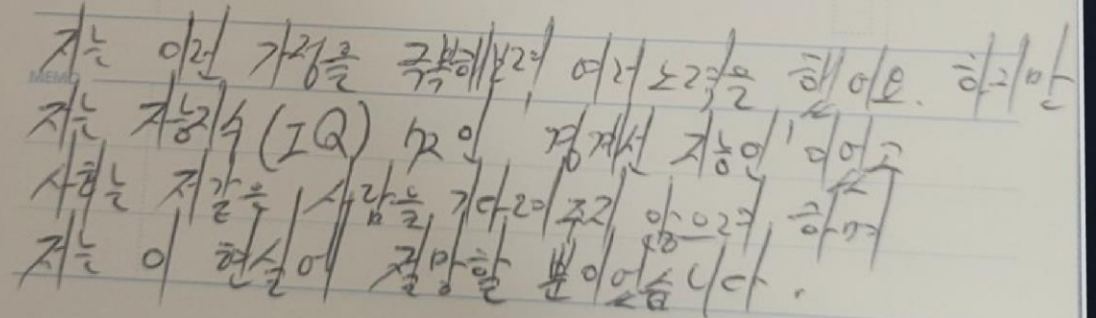 저는 이런 가정을 극복해보려 여러 노력을 했어요. 하지만
MEMO
저는 지능지수(IQ) 72인 '경계선 지능인'이었고
사회는 저같은 사람을 기다려주지 않으려 하며
저는 이 현실에 절망할 뿐이었습니다.